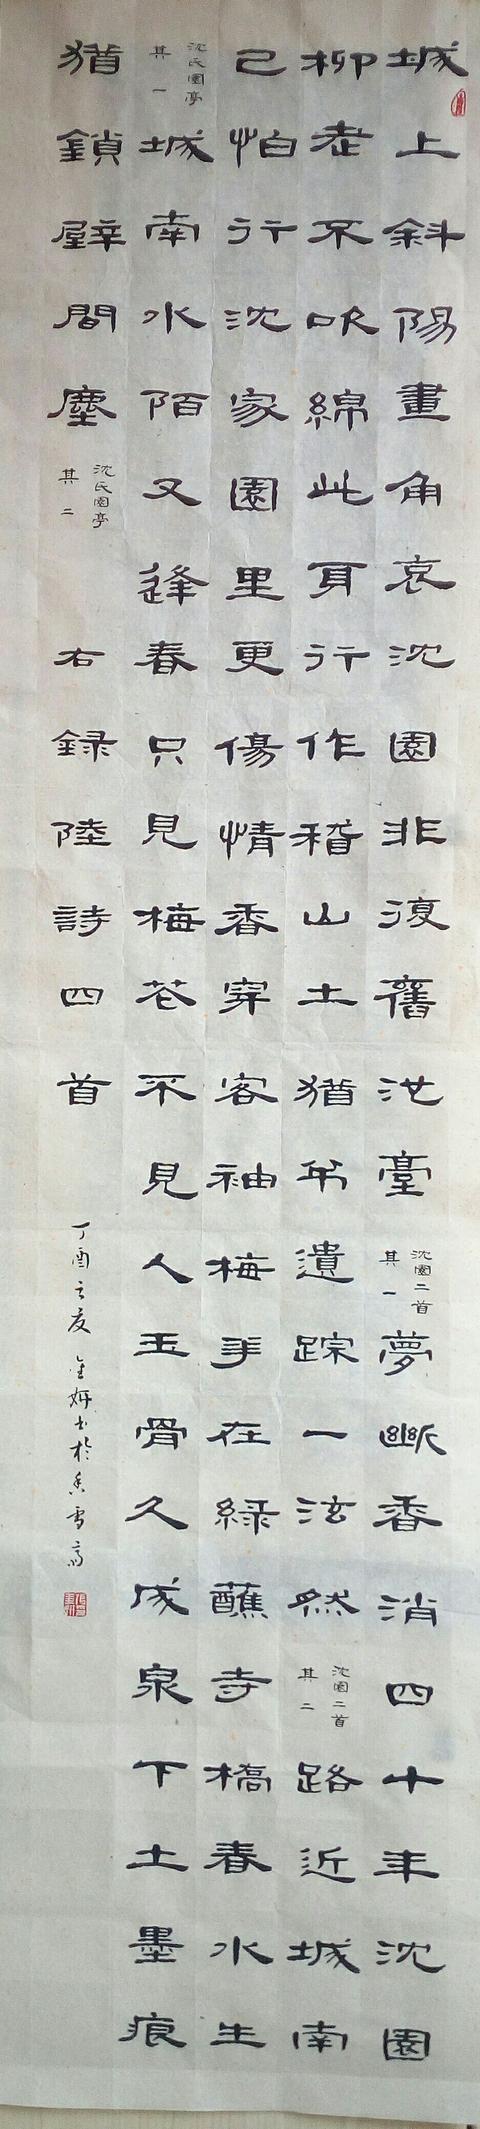 城上斜陽畫角哀沈園非復舊池臺沈園二首其一夢斷香消四十年沈園
柳老不吹綿此身行作稽山土猶弔遺踪一泫然沈園二首其二路近城南
已怕行沈家園里更傷情香穿客袖梅羊在綠蘸寺橋春水生
沈氏園亭其一城南小陌又逢春只見梅花不見人玉骨久成泉下土墨痕
猶鎖壁間塵沈氏園亭其二右録陸詩四首
丁酉之夏金妍書於香雪齋